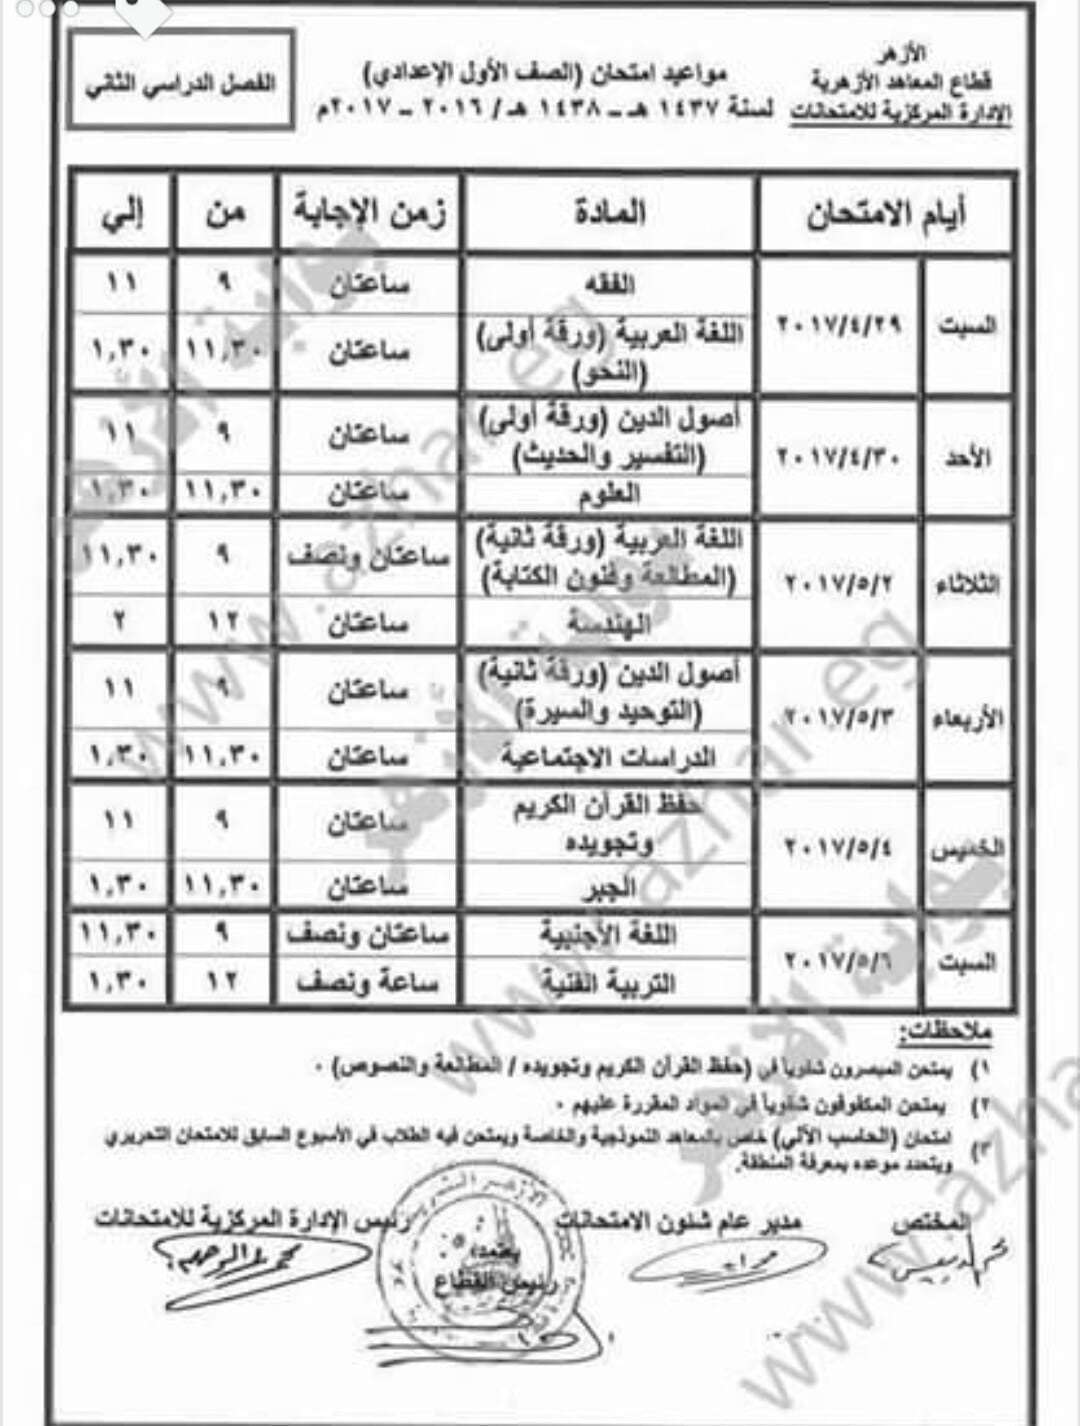 الأزهر
قطاع المعاهد الأزهرية
الإدارة المركزية للامتحانات
مواعيد امتحان (الصف الأول الإعدادي)
لسنة ١٤٣٧ هـ - ١٤٣٨ هـ / ٢٠١٦ - ٢٠١٧م
الفصل الدراسي الثاني
أيام الامتحان المادة زمن الإجابة من إلي
السبت ٢٠١٧/٤/٢٩ الفقه ساعتان ٩ ١١
اللغة العربية (ورقة أولى) (النحو) ساعتان ١١,٣٠ ١,٣٠
الأحد ٢٠١٧/٤/٣٠ أصول الدين (ورقة أولى) (التفسير والحديث) ساعتان ٩ ١١
العلوم ساعتان ١١,٣٠ ١,٣٠
الثلاثاء ٢٠١٧/٥/٢ اللغة العربية (ورقة ثانية) (المطالعة وفنون الكتابة) ساعتان ونصف ٩ ١١,٣٠
الهندسة ساعتان ١٢ ٢
الأربعاء ٢٠١٧/٥/٣ أصول الدين (ورقة ثانية) (التوحيد والسيرة) ساعتان ٩ ١١
الدراسات الاجتماعية ساعتان ١١,٣٠ ١,٣٠
الخميس ٢٠١٧/٥/٤ حفظ القرآن الكريم وتجويده ساعتان ٩ ١١
الجبر ساعتان ١١,٣٠ ١,٣٠
السبت ٢٠١٧/٥/٦ اللغة الأجنبية ساعتان ونصف ٩ ١١,٣٠
التربية الفنية ساعة ونصف ١٢ ١,٣٠
ملاحظات:
١) يمتحن المبصرون شفوياً في (حفظ القرآن الكريم وتجويده / المطالعة والنصوص) ٠
٢) يمتحن المكفوفون شفوياً في المواد المقررة عليهم ٠
٣) امتحان (الحاسب الآلي) خاص بالمعاهد النموذجية والخاصة ويمتحن فيه الطلاب في الأسبوع السابق للامتحان التحريري
ويتحدد موعده بمعرفة المنطقة.
المختص مدير عام شئون الامتحانات رئيس الإدارة المركزية للامتحانات
يعتمد،
رئيس القطاع
بوابة الأزهر
www.azhar.eg